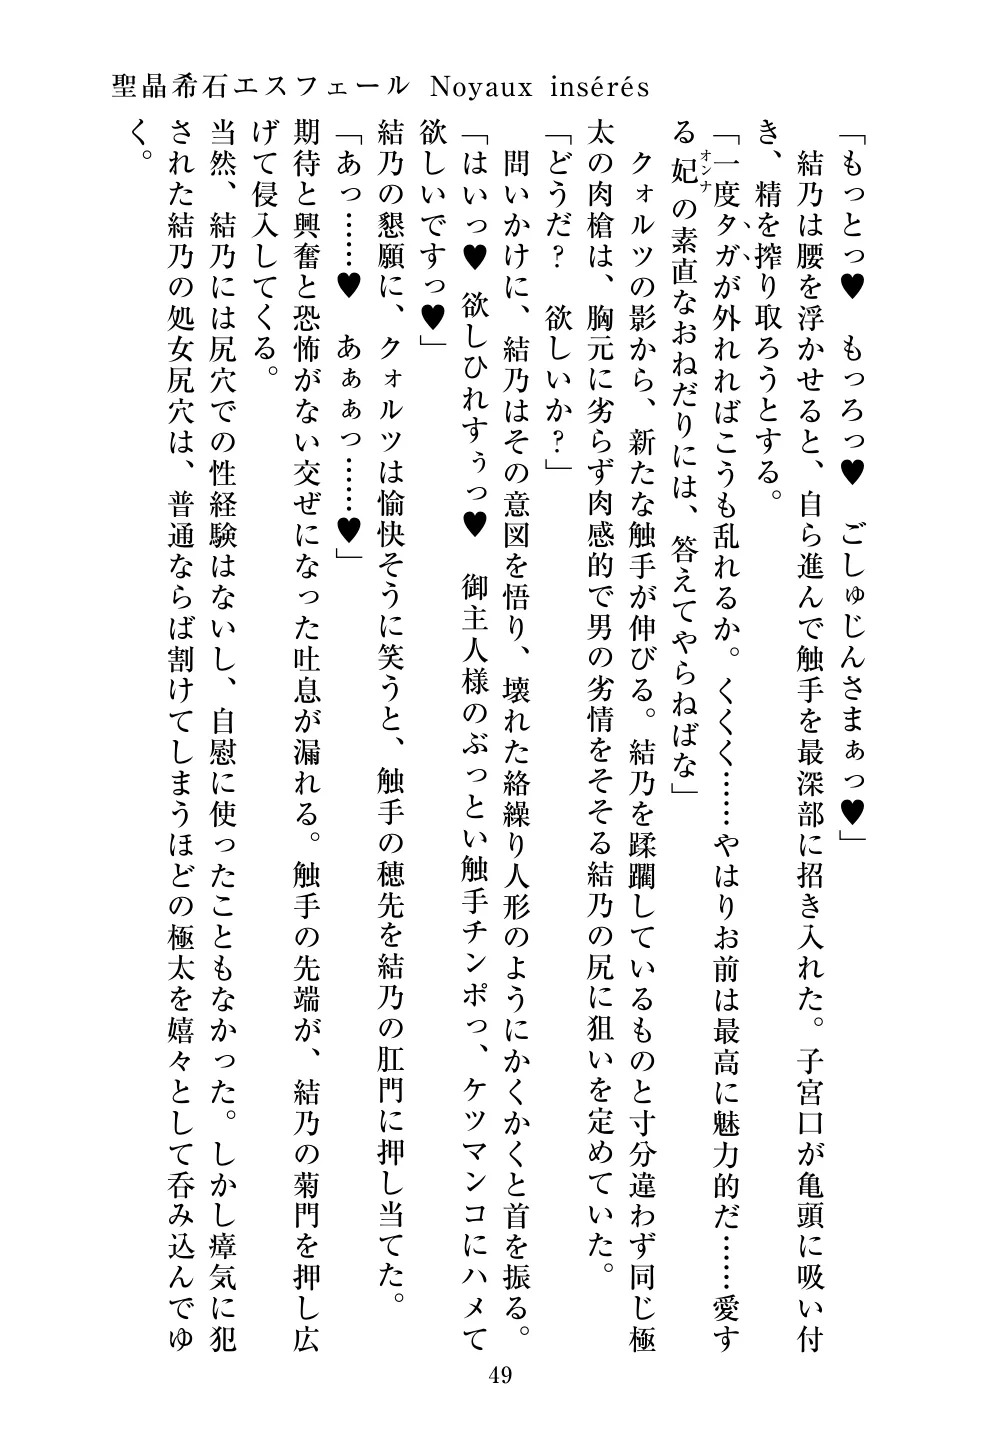 聖晶希石エスフェール Noyaux insérés
「もっとっ♥　もっろっ♥　ごしゅじんさまぁっ♥」
　結乃は腰を浮かせると、自ら進んで触手を最深部に招き入れた。子宮口が亀頭に吸い付
き、精を搾り取ろうとする。
「一度タガが外れればこうも乱れるか。くくく……やはりお前は最高に魅力的だ……愛す
る妃の素直なおねだりには、答えてやらねばな」
オンナ
　クォルツの影から、新たな触手が伸びる。結乃を蹂躙しているものと寸分違わず同じ極
太の肉槍は、胸元に劣らず肉感的で男の劣情をそそる結乃の尻に狙いを定めていた。
「どうだ？　欲しいか？」
　問いかけに、結乃はその意図を悟り、壊れた絡繰り人形のようにかくかくと首を振る。
「はいっ♥　欲しひれすぅっ♥　御主人様のぶっとい触手チンポっ、ケツマンコにハメて
欲しいですっ♥」
結乃の懇願に、クォルツは愉快そうに笑うと、触手の穂先を結乃の肛門に押し当てた。
「あっ……♥　あぁぁっ……♥」
期待と興奮と恐怖がない交ぜになった吐息が漏れる。触手の先端が、結乃の菊門を押し広
げて侵入してくる。
当然、結乃には尻穴での性経験はないし、自慰に使ったこともなかった。しかし瘴気に犯
された結乃の処女尻穴は、普通ならば割けてしまうほどの極太を嬉々として呑み込んでゆ
く。
49